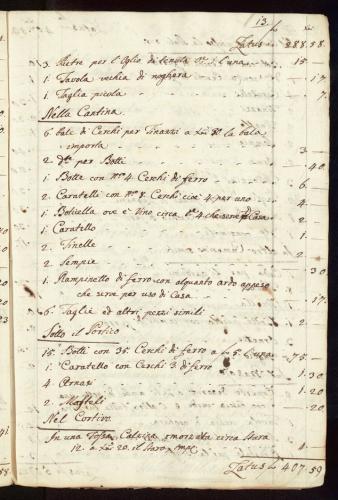 13.
Latus 288.58.
3 Pietre per l'Oglio di tenuta l'una 15 —
1. Tavola vechia di noghera — .17.
1. Taglia picola — 7.
Nella Cantina.
6 bale di Cerchi per Tinazzi a la bala
importa 3 —
2. dte. per Botti — .40.
1. Botte con No. 4. Cerchi di ferro 6.
2. Caratelli con No. 8. Cerchi cioè 4 per uno 4 —
1. Boticella ove è Vino circa 4 che serve Casa 2
1. Caratello 1
2. Tinelle 2 —
2. Sempie — .30
1. Rampinetto di ferro con alquanto ardo appeso
che serve per uso di Casa 1.
6. Taglie ed altri pezzi simili — .17.
Sotto il Portico
15. Botti con 35. Cerchi di ferro a 5. l'una 75 —
1. Caratello con Cerchi 3 di ferro 1.30
4 1.20
2. Mastelli — .20
Nel Cortivo.
In una Fossa Calzina smorzata circa Stara
12. a 20. il Staro 4
Latus 407.59